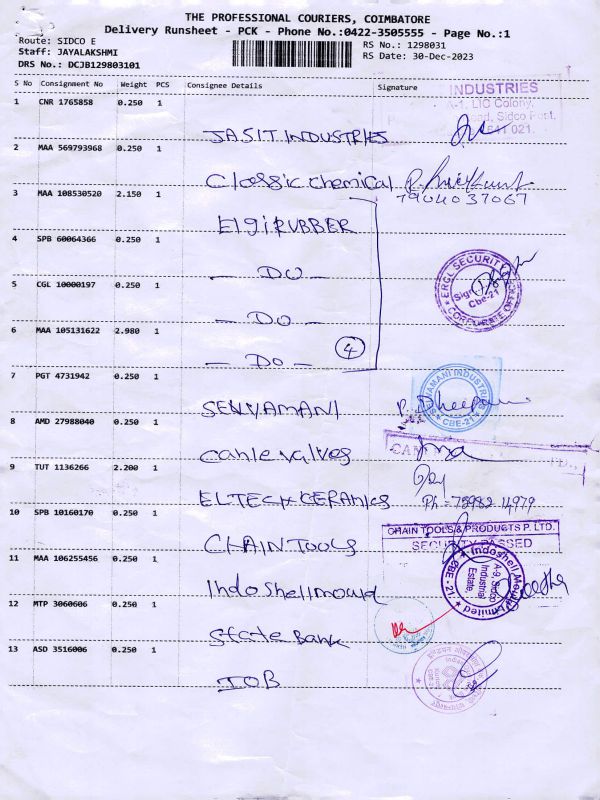 THE PROFESSIONAL COURIERS, COIMBATORE
Delivery Runsheet - PCK - Phone No.:0422-3505555 - Page No.:1
Route: SIDCO E
Staff: JAYALAKSHMI
DRS No.: DCJB129803101
RS No.: 1298031
RS Date: 30-Dec-2023
S No Consignment No Weight PCS Consignee Details Signature
INDUSTRIES
A-1, LIC Colony,
Sidco Post,
641 021.
1 CNR 1765858 0.250 1
JASIT INDUSTRIES
2 MAA 569793968 0.250 1
Classic chemical
7904037067
3 MAA 108530520 2.150 1
ElgiRUBBER
4 SPB 60064366 0.250 1
- DO -
ERGL SECURITY
Sign
Cbe-21
CORPORATE OFFICE
5 CGL 10000197 0.250 1
- DO -
6 MAA 105131622 2.980 1
- DO -
4
7 PGT 4731942 0.250 1
SELVAMANI
SELVAMANI INDUSTRIES
CBE-21
P. Dheepa
8 AMD 27988040 0.250 1
Canle valves
9 TUT 1136266 2.200 1
ELTECH CERAMICS
Ph - 75982 14979
10 SPB 10160170 0.250 1
CHAIN TOOLS
CHAIN TOOLS & PRODUCTS P. LTD.
SECURITY PASSED
11 MAA 106255456 0.250 1
Indoshell mould
Indoshell Mould Limited
A-9, Sidco
Industrial
Estate
CBE - 21
12 MTP 3060606 0.250 1
State Bank
13 ASD 3516006 0.250 1
IOB